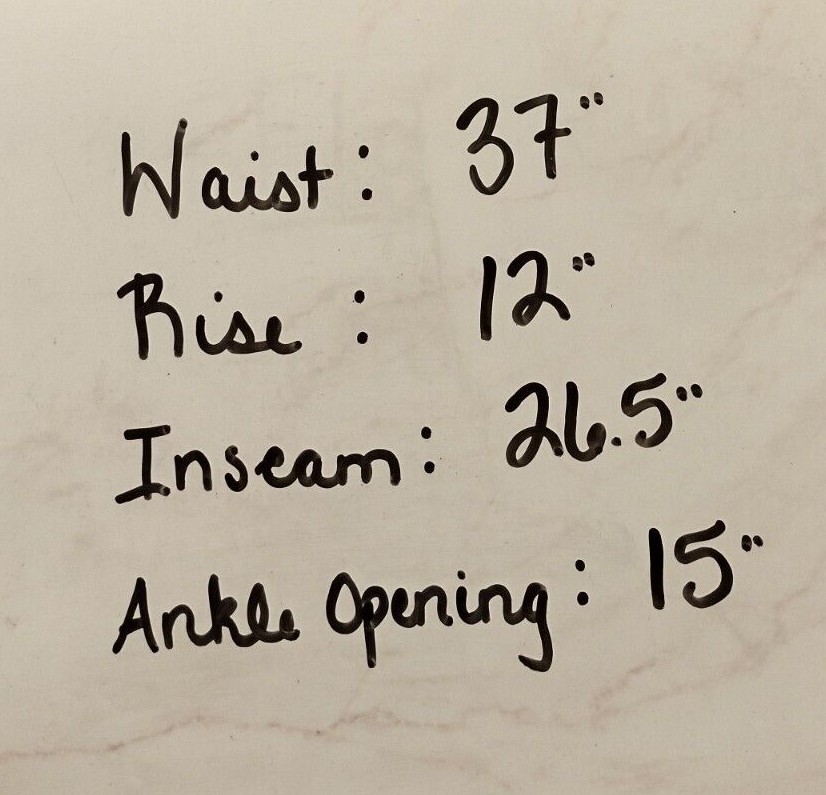 Waist: 37"
Rise: 12"
Inseam: 26.5"
Ankle Opening: 15"